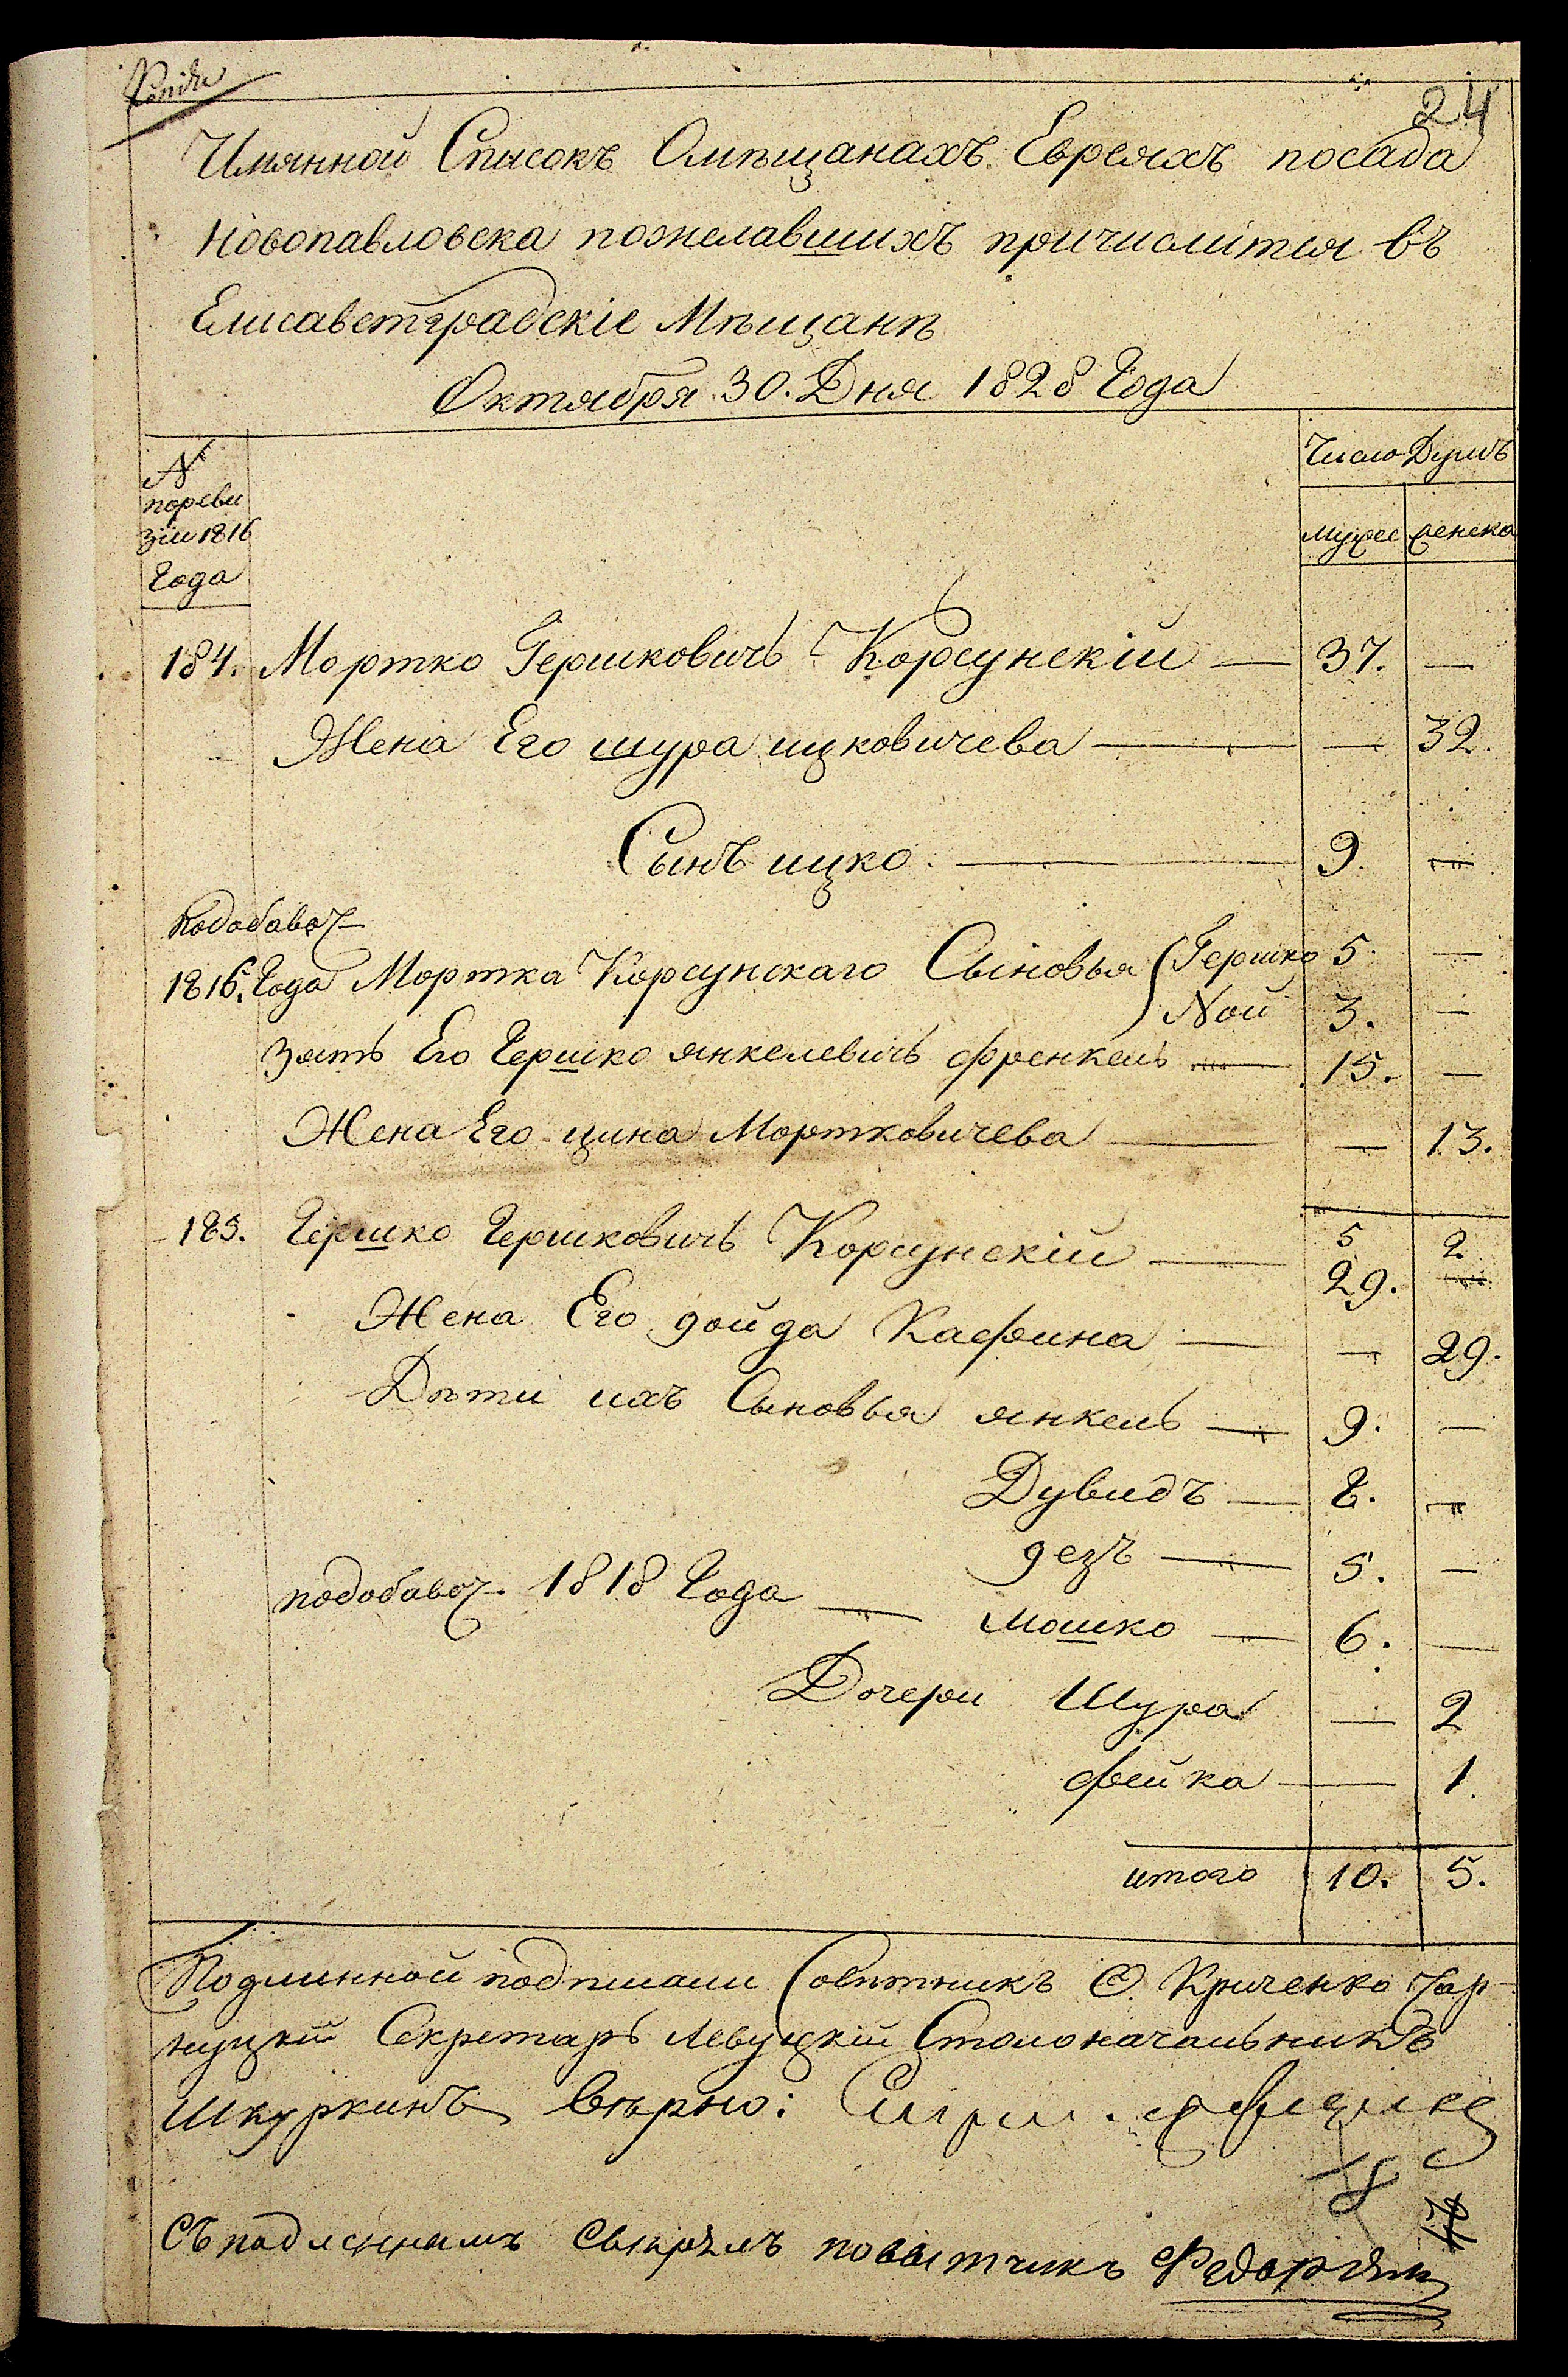 Копія
24
Имянной Списокъ Омѣщанахъ Евреяхъ посада
Новопавловска пожелавшихъ причислится въ
Елисаветградскіе Мѣщанѣ
Октября 30. Дня 1828 Года
N
пореви
зіи 1816
Года
Число Душъ
мужес женска
184. Мортко Гершковичъ Корсунскій — 37. —
Жена Его шура ицковичева — — 32.
Сынъ ицко — 9. —
подобавоч
1816. Года Мортка Корсунскаго Сыновья Гершко 5. —
Ной 3. —
зять Его Гершко янкелевичъ френкель — 15. —
Жена Его ципа Мортковичева — — 13.
5 2
185. Гершко Гершковичъ Корсунскій — 29. —
Жена Его дойда Кафина — — 29.
Дѣти ихъ Сыновья янкель — 9. —
Дувидъ — 8. —
дезъ — 5. —
подобавоч. 1818 Года — мошко — 6. —
Дочери Шура — 2
фейка — 1.
итого 10. 5.
Подлинной подписали Совѣтникъ Криченко
Секретарь Левуцкій Столоначальникъ
Шкуркинъ Вѣрно:
Съ подленнымъ свирѣлъ повытчикъ